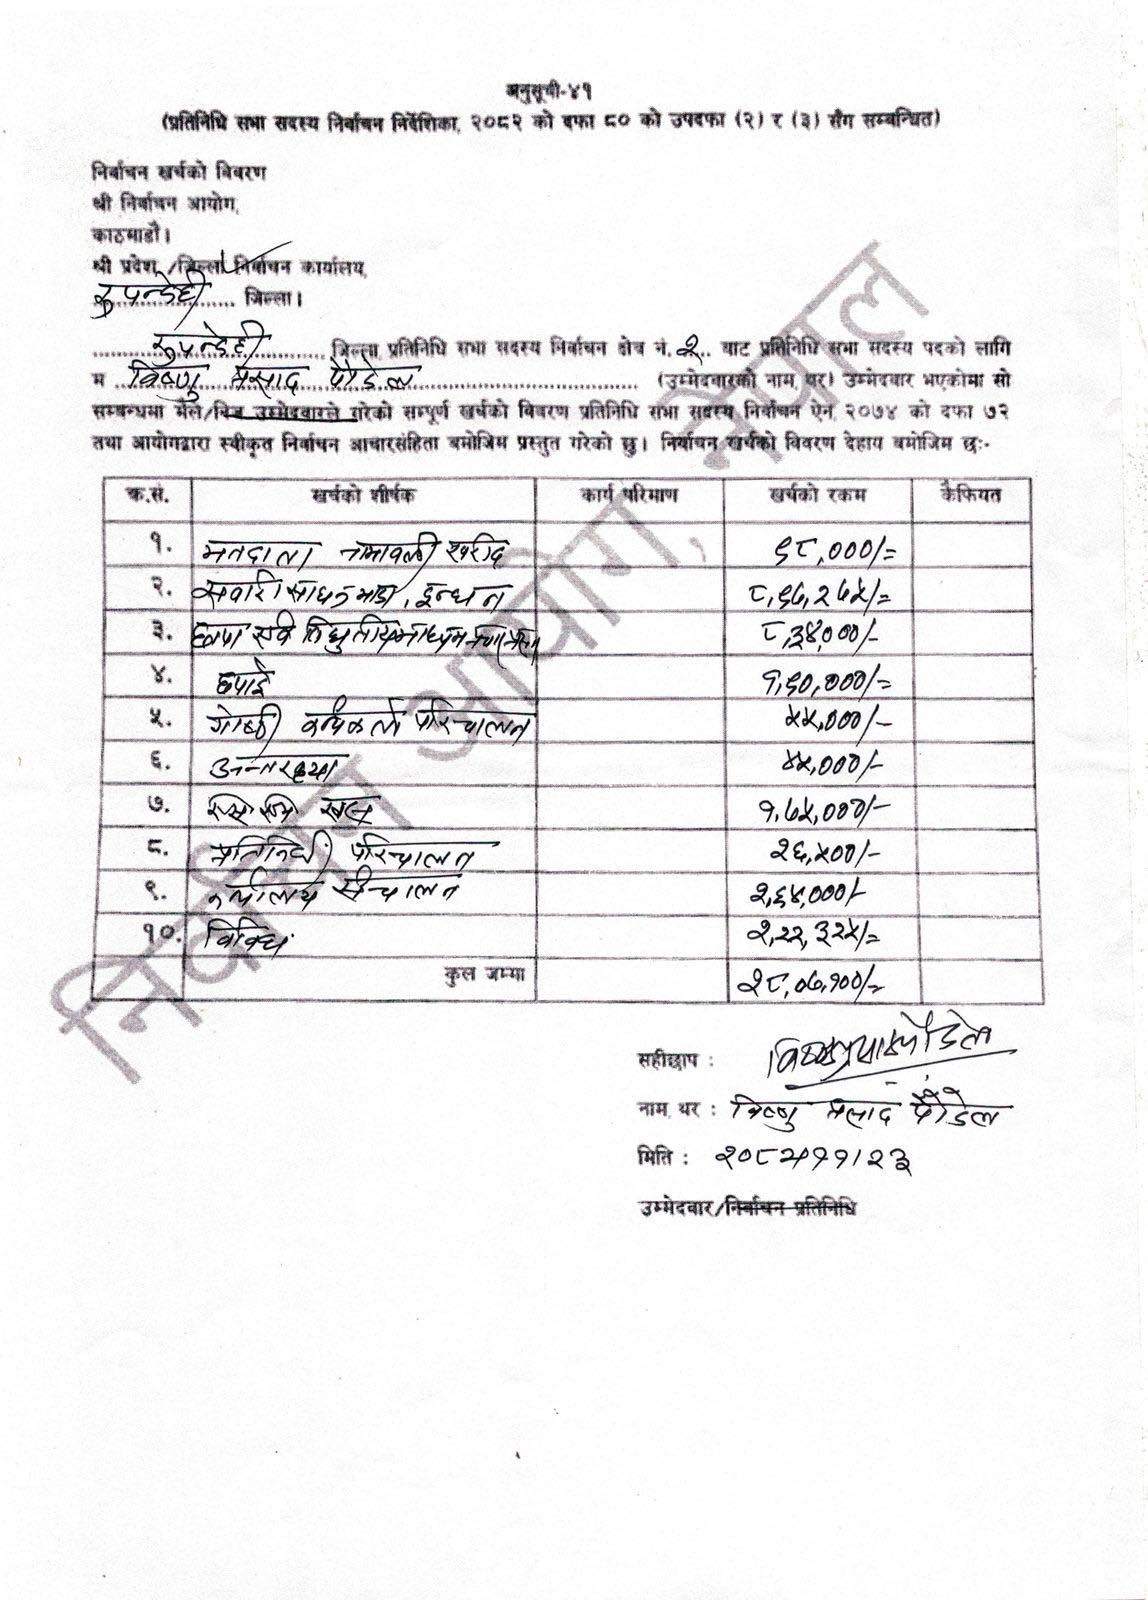 अनुसूची-४१
(प्रतिनिधि सभा सदस्य निर्वाचन निर्देशिका, २०८२ को दफा ८० को उपदफा (२) र (३) सँग सम्बन्धित)
निर्वाचन खर्चको विवरण
श्री निर्वाचन आयोग,
काठमाडौं।
श्री प्रदेश/जिल्ला निर्वाचन कार्यालय,
रुपन्देही जिल्ला।
रुपन्देही जिल्ला, प्रतिनिधि सभा सदस्य निर्वाचन क्षेत्र नं. २ बाट प्रतिनिधि सभा सदस्य पदको लागि
म विष्णु प्रसाद पौडेल (उम्मेदवारको नाम, थर) उम्मेदवार भएकोमा सो
सम्बन्धमा मैले/निज उम्मेदवारले गरेको सम्पूर्ण खर्चको विवरण प्रतिनिधि सभा सदस्य निर्वाचन ऐन, २०७४ को दफा ७२
तथा आयोगद्वारा स्वीकृत निर्वाचन आचारसंहिता बमोजिम प्रस्तुत गरेको छु। निर्वाचन खर्चको विवरण देहाय बमोजिम छः-
क्र.सं. खर्चको शीर्षक कार्य परिमाण खर्चको रकम कैफियत
१. मतदाता नामावली खरीद ६८,०००/=
२. सवारी साधन भाडा, इन्धन ८,६७,२७५/=
३. छापा एवं विधुतीय माध्यम ८,३४,०००/-
४. छपाई १,६०,०००/=
५. गोष्ठी परिचालन ५५,०००/-
६. अन्तरक्रिया ४५,०००/-
७. खर्च १,७५,०००/-
८. प्रतिनिधी परिचालन २६,५००/-
९. कार्यालय संचालन २,६४,०००/-
१०. विविध २,२२,३२५/=
कुल जम्मा २८,०७,१००/=
सहीछाप : विष्णुप्रसाद पौडेल
नाम, थर : विष्णु प्रसाद पौडेल
मिति : २०८२।११।२३
उम्मेदवार/निर्वाचन प्रतिनिधि
निर्वाचन आयोग, नेपाल